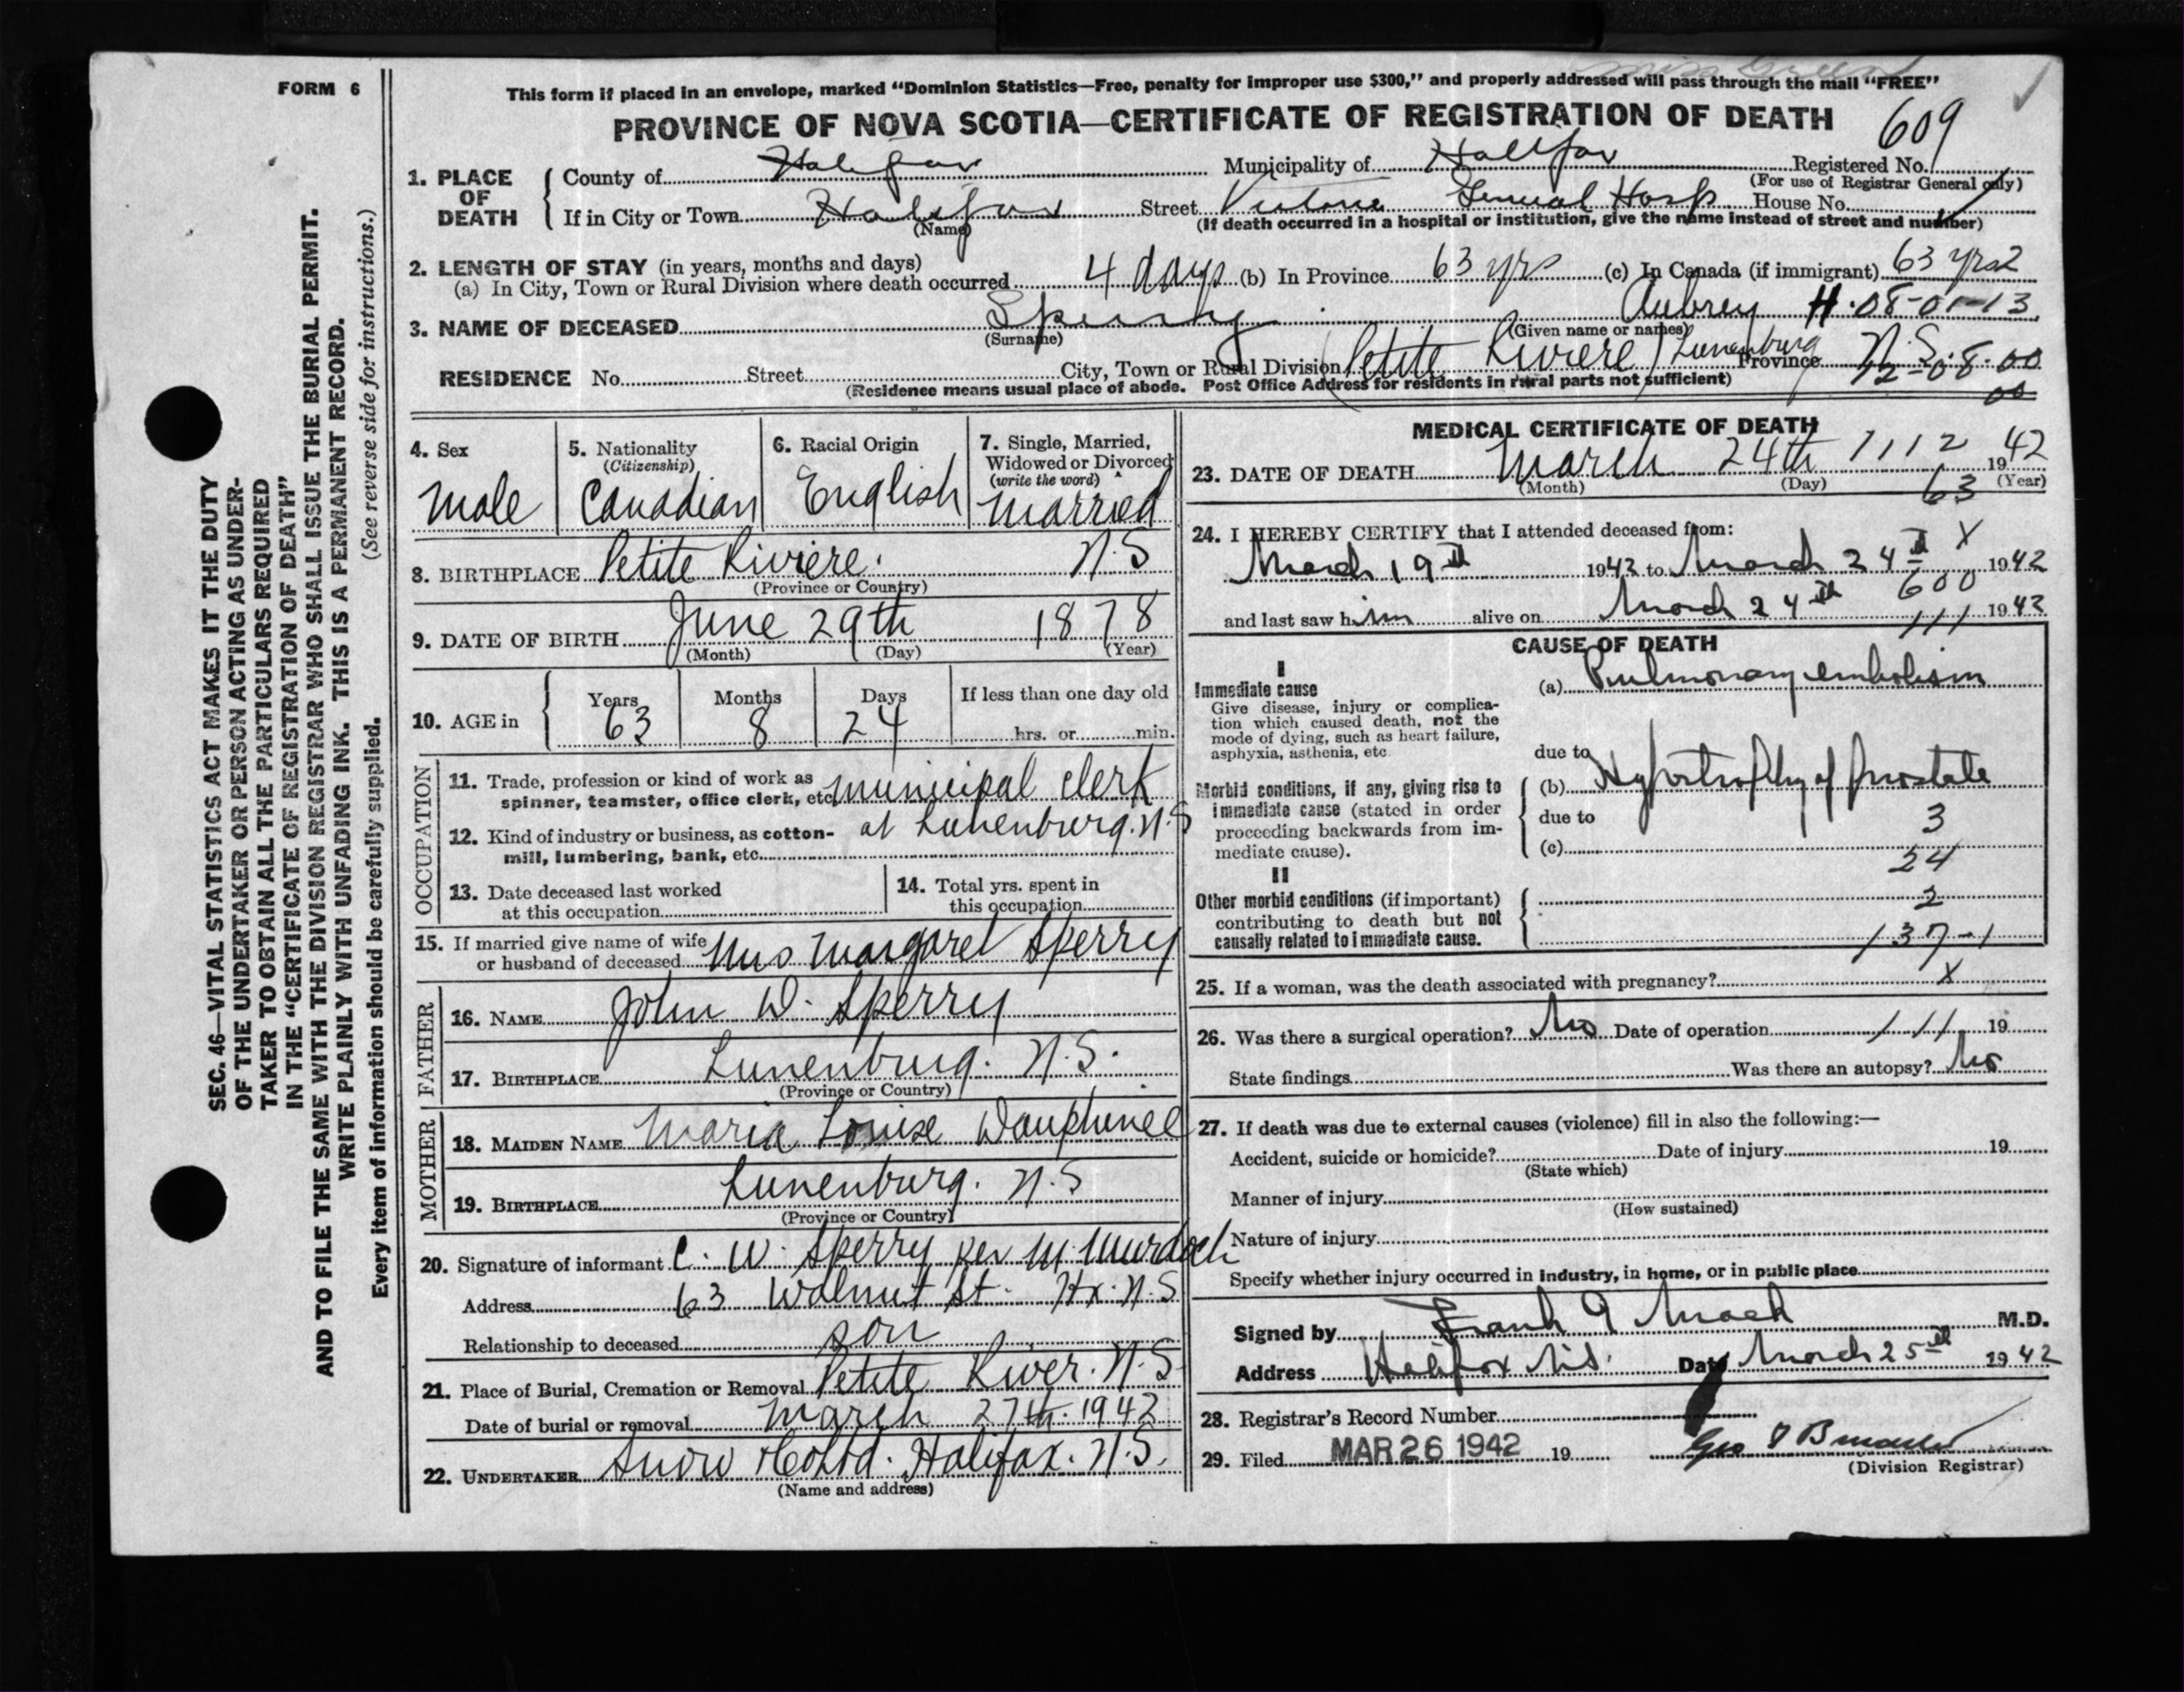 FORM 6
This form if placed in an envelope, marked "Dominion Statistics—Free, penalty for improper use $300," and properly addressed will pass through the mail "FREE"
PROVINCE OF NOVA SCOTIA—CERTIFICATE OF REGISTRATION OF DEATH
609
1. PLACE OF DEATH
County of Halifax Municipality of Halifax Registered No.
(For use of Registrar General only)
If in City or Town Halifax Street Victoria General Hosp House No.
(Name) (If death occurred in a hospital or institution, give the name instead of street and number)
2. LENGTH OF STAY (in years, months and days)
(a) In City, Town or Rural Division where death occurred 4 days (b) In Province 63 yrs (c) In Canada (if immigrant) 63 yrs 2
3. NAME OF DECEASED Sperry Aubrey H. 08-01-13
(Surname) (Given name or names)
RESIDENCE No. Street City, Town or Rural Division Petite Riviere, Lunenburg Province N.S. 08-00
(Residence means usual place of abode. Post Office Address for residents in rural parts not sufficient)
00
4. Sex
Male
5. Nationality
(Citizenship)
Canadian
6. Racial Origin
English
7. Single, Married,
Widowed or Divorced
(write the word)
Married
8. BIRTHPLACE Petite Riviere. N.S
(Province or Country)
9. DATE OF BIRTH June 29th 1878
(Month) (Day) (Year)
10. AGE in
Years Months Days If less than one day old
63 8 24 hrs. or min.
OCCUPATION
11. Trade, profession or kind of work as
spinner, teamster, office clerk, etc. Municipal Clerk
12. Kind of industry or business, as cotton-
mill, lumbering, bank, etc. at Lunenburg. N.S
13. Date deceased last worked
at this occupation
14. Total yrs. spent in
this occupation
15. If married give name of wife
or husband of deceased Mrs Margaret Sperry
FATHER
16. NAME John W. Sperry
17. BIRTHPLACE Lunenburg. N.S.
(Province or Country)
MOTHER
18. MAIDEN NAME Maria Louise Dauphinee
19. BIRTHPLACE Lunenburg. N.S
(Province or Country)
20. Signature of informant C. W. Sperry per M. Murdoch
Address 63 Walnut St. Hx. N.S
Relationship to deceased son
21. Place of Burial, Cremation or Removal Petite River. N.S
Date of burial or removal March 27th. 1942
22. UNDERTAKER Snow & Co Ltd. Halifax. N.S.
(Name and address)
MEDICAL CERTIFICATE OF DEATH
23. DATE OF DEATH March 24th 1112 1942
(Month) (Day) (Year)
63
24. I HEREBY CERTIFY that I attended deceased from:
X
March 19th 1942 to March 24th 1942
600
and last saw him alive on March 24th 1942
111
CAUSE OF DEATH
I
Immediate cause
Give disease, injury or complica-
tion which caused death, not the
mode of dying, such as heart failure,
asphyxia, asthenia, etc
(a) Pulmonary embolism
due to
Morbid conditions, if any, giving rise to
immediate cause (stated in order
proceeding backwards from im-
mediate cause).
(b) Hypertrophy of prostate
due to
3
(c)
24
II
Other morbid conditions (if important)
contributing to death but not
causally related to immediate cause.
2
137-1
25. If a woman, was the death associated with pregnancy? X
26. Was there a surgical operation? No Date of operation 111 19
State findings Was there an autopsy? No
27. If death was due to external causes (violence) fill in also the following:—
Accident, suicide or homicide? Date of injury 19
(State which)
Manner of injury
(How sustained)
Nature of injury
Specify whether injury occurred in industry, in home, or in public place
Signed by Frank G Mack M.D.
Address Halifax N.S. Date March 25th 1942
28. Registrar's Record Number
29. Filed MAR 26 1942 19
(Division Registrar)
SEC. 46—VITAL STATISTICS ACT MAKES IT THE DUTY
OF THE UNDERTAKER OR PERSON ACTING AS UNDER-
TAKER TO OBTAIN ALL THE PARTICULARS REQUIRED
IN THE "CERTIFICATE OF REGISTRATION OF DEATH"
AND TO FILE THE SAME WITH THE DIVISION REGISTRAR WHO SHALL ISSUE THE BURIAL PERMIT.
WRITE PLAINLY WITH UNFADING INK. THIS IS A PERMANENT RECORD.
Every item of information should be carefully supplied. (See reverse side for instructions.)